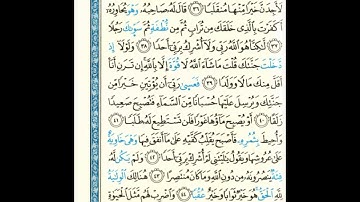 لَأَجِدَنَّ خَيْرًا مِّنْهَا مُنقَلَبًا ٣٦ قَالَ لَهُۥ صَاحِبُهُۥ وَهُوَ يُحَاوِرُهُۥٓ
أَكَفَرْتَ بِٱلَّذِى خَلَقَكَ مِن تُرَابٍ ثُمَّ مِن نُّطْفَةٍ ثُمَّ سَوَّىٰكَ رَجُلًا
٣٧ لَّٰكِنَّا۠ هُوَ ٱللَّهُ رَبِّى وَلَآ أُشْرِكُ بِرَبِّىٓ أَحَدًا ٣٨ وَلَوْلَآ إِذْ
دَخَلْتَ جَنَّتَكَ قُلْتَ مَا شَآءَ ٱللَّهُ لَا قُوَّةَ إِلَّا بِٱللَّهِ إِن تَرَنِ أَنَا۠
أَقَلَّ مِنكَ مَالًا وَوَلَدًا ٣٩ فَعَسَىٰ رَبِّىٓ أَن يُؤْتِيَنِ خَيْرًا مِّن
جَنَّتِكَ وَيُرْسِلَ عَلَيْهَا حُسْبَانًا مِّنَ ٱلسَّمَآءِ فَتُصْبِحَ صَعِيدًا
زَلَقًا ٤٠ أَوْ يُصْبِحَ مَآؤُهَا غَوْرًا فَلَن تَسْتَطِيعَ لَهُۥ طَلَبًا ٤١
وَأُحِيطَ بِثَمَرِهِۦ فَأَصْبَحَ يُقَلِّبُ كَفَّيْهِ عَلَىٰ مَآ أَنفَقَ فِيهَا وَهِىَ خَاوِيَةٌ
عَلَىٰ عُرُوشِهَا وَيَقُولُ يَٰلَيْتَنِى لَمْ أُشْرِكْ بِرَبِّىٓ أَحَدًا ٤٢ وَلَمْ تَكُن لَّهُۥ
فِئَةٌ يَنصُرُونَهُۥ مِن دُونِ ٱللَّهِ وَمَا كَانَ مُنتَصِرًا ٤٣ هُنَالِكَ ٱلْوَلَٰيَةُ
لِلَّهِ ٱلْحَقِّ هُوَ خَيْرٌ ثَوَابًا وَخَيْرٌ عُقْبًا ٤٤ وَٱضْرِبْ لَهُم مَّثَلَ ٱلْحَيَوٰةِ